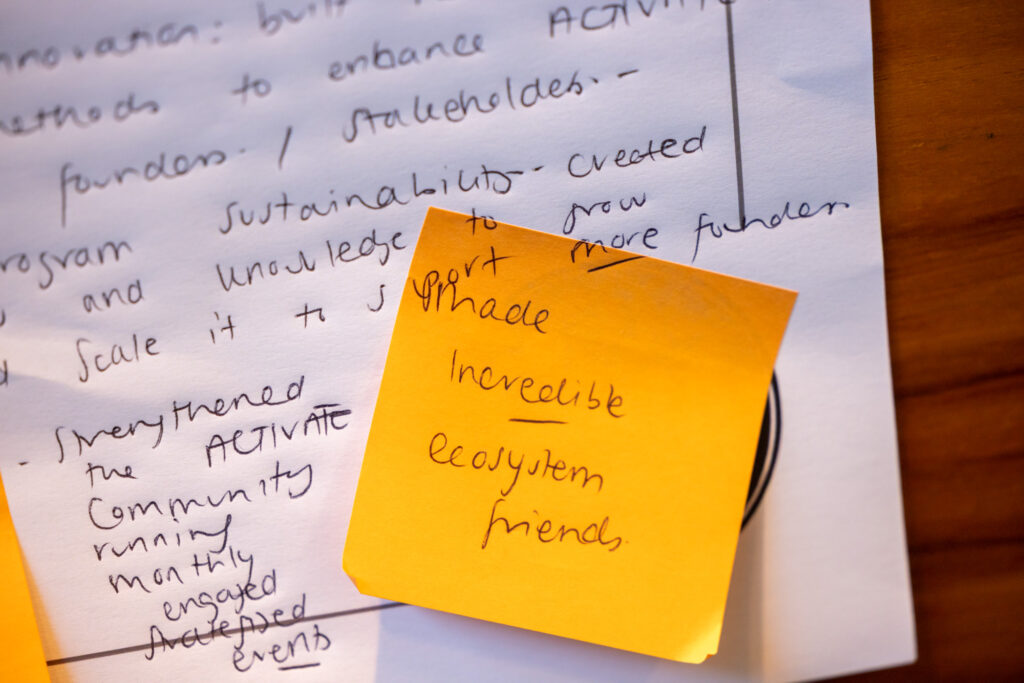 nnovation: built
methods to enhance ACTIVIT
founders. / stakeholdes.-
rogram sustainability-- created
and knowledge to grow
scale it to support more founders
- Strengthened
the ACTIVATE
Community
running
monthly
engaged
events
made
Incredible
ecosystem
friends.